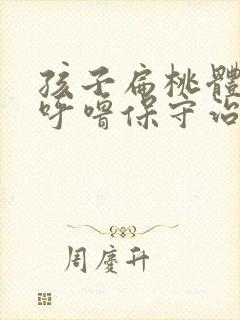 孩子扁桃體
呼噜保守治
周慶升